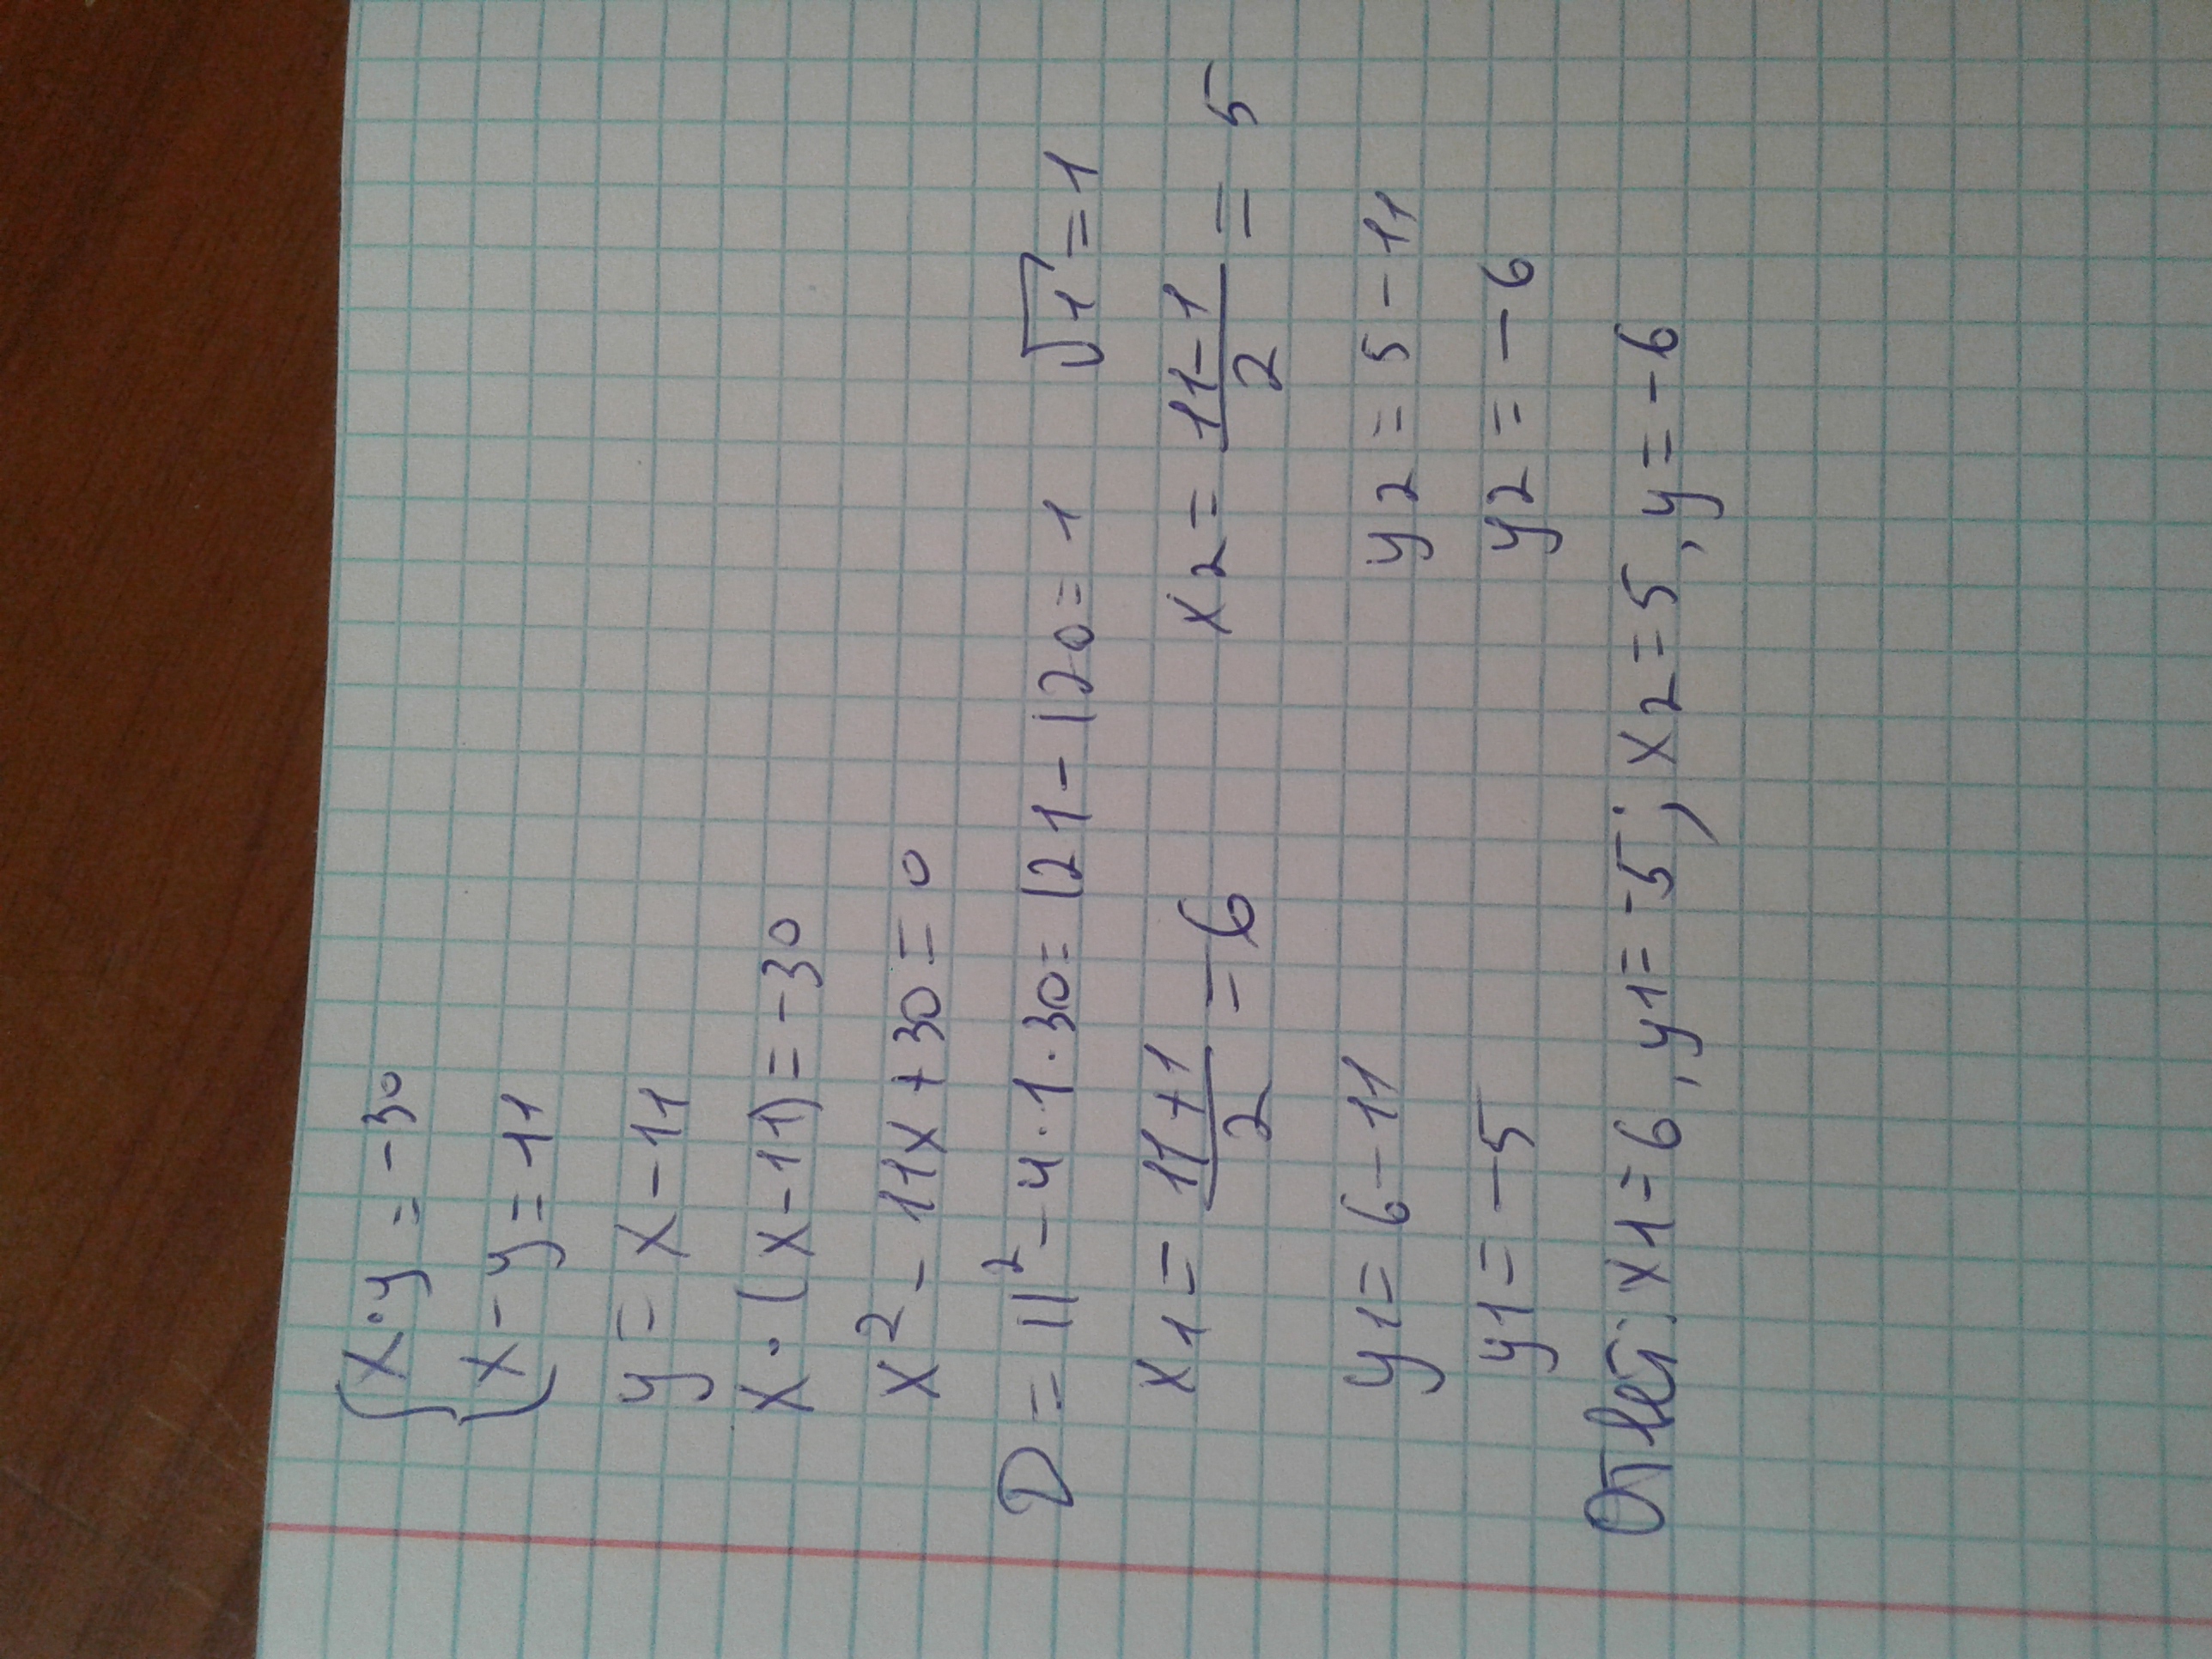 { x·y = -30
{ x - y = 11
y = x - 11
x·(x-11) = -30
x² - 11x + 30 = 0
D = 11² - 4·1·30 = 121 - 120 = 1 √1 = 1
x1 = (11+1)/2 = 6 x2 = (11-1)/2 = 5
y1 = 6 - 11 y2 = 5 - 11
y1 = -5 y2 = -6
Ответ: x1 = 6, y1 = -5; x2 = 5, y = -6